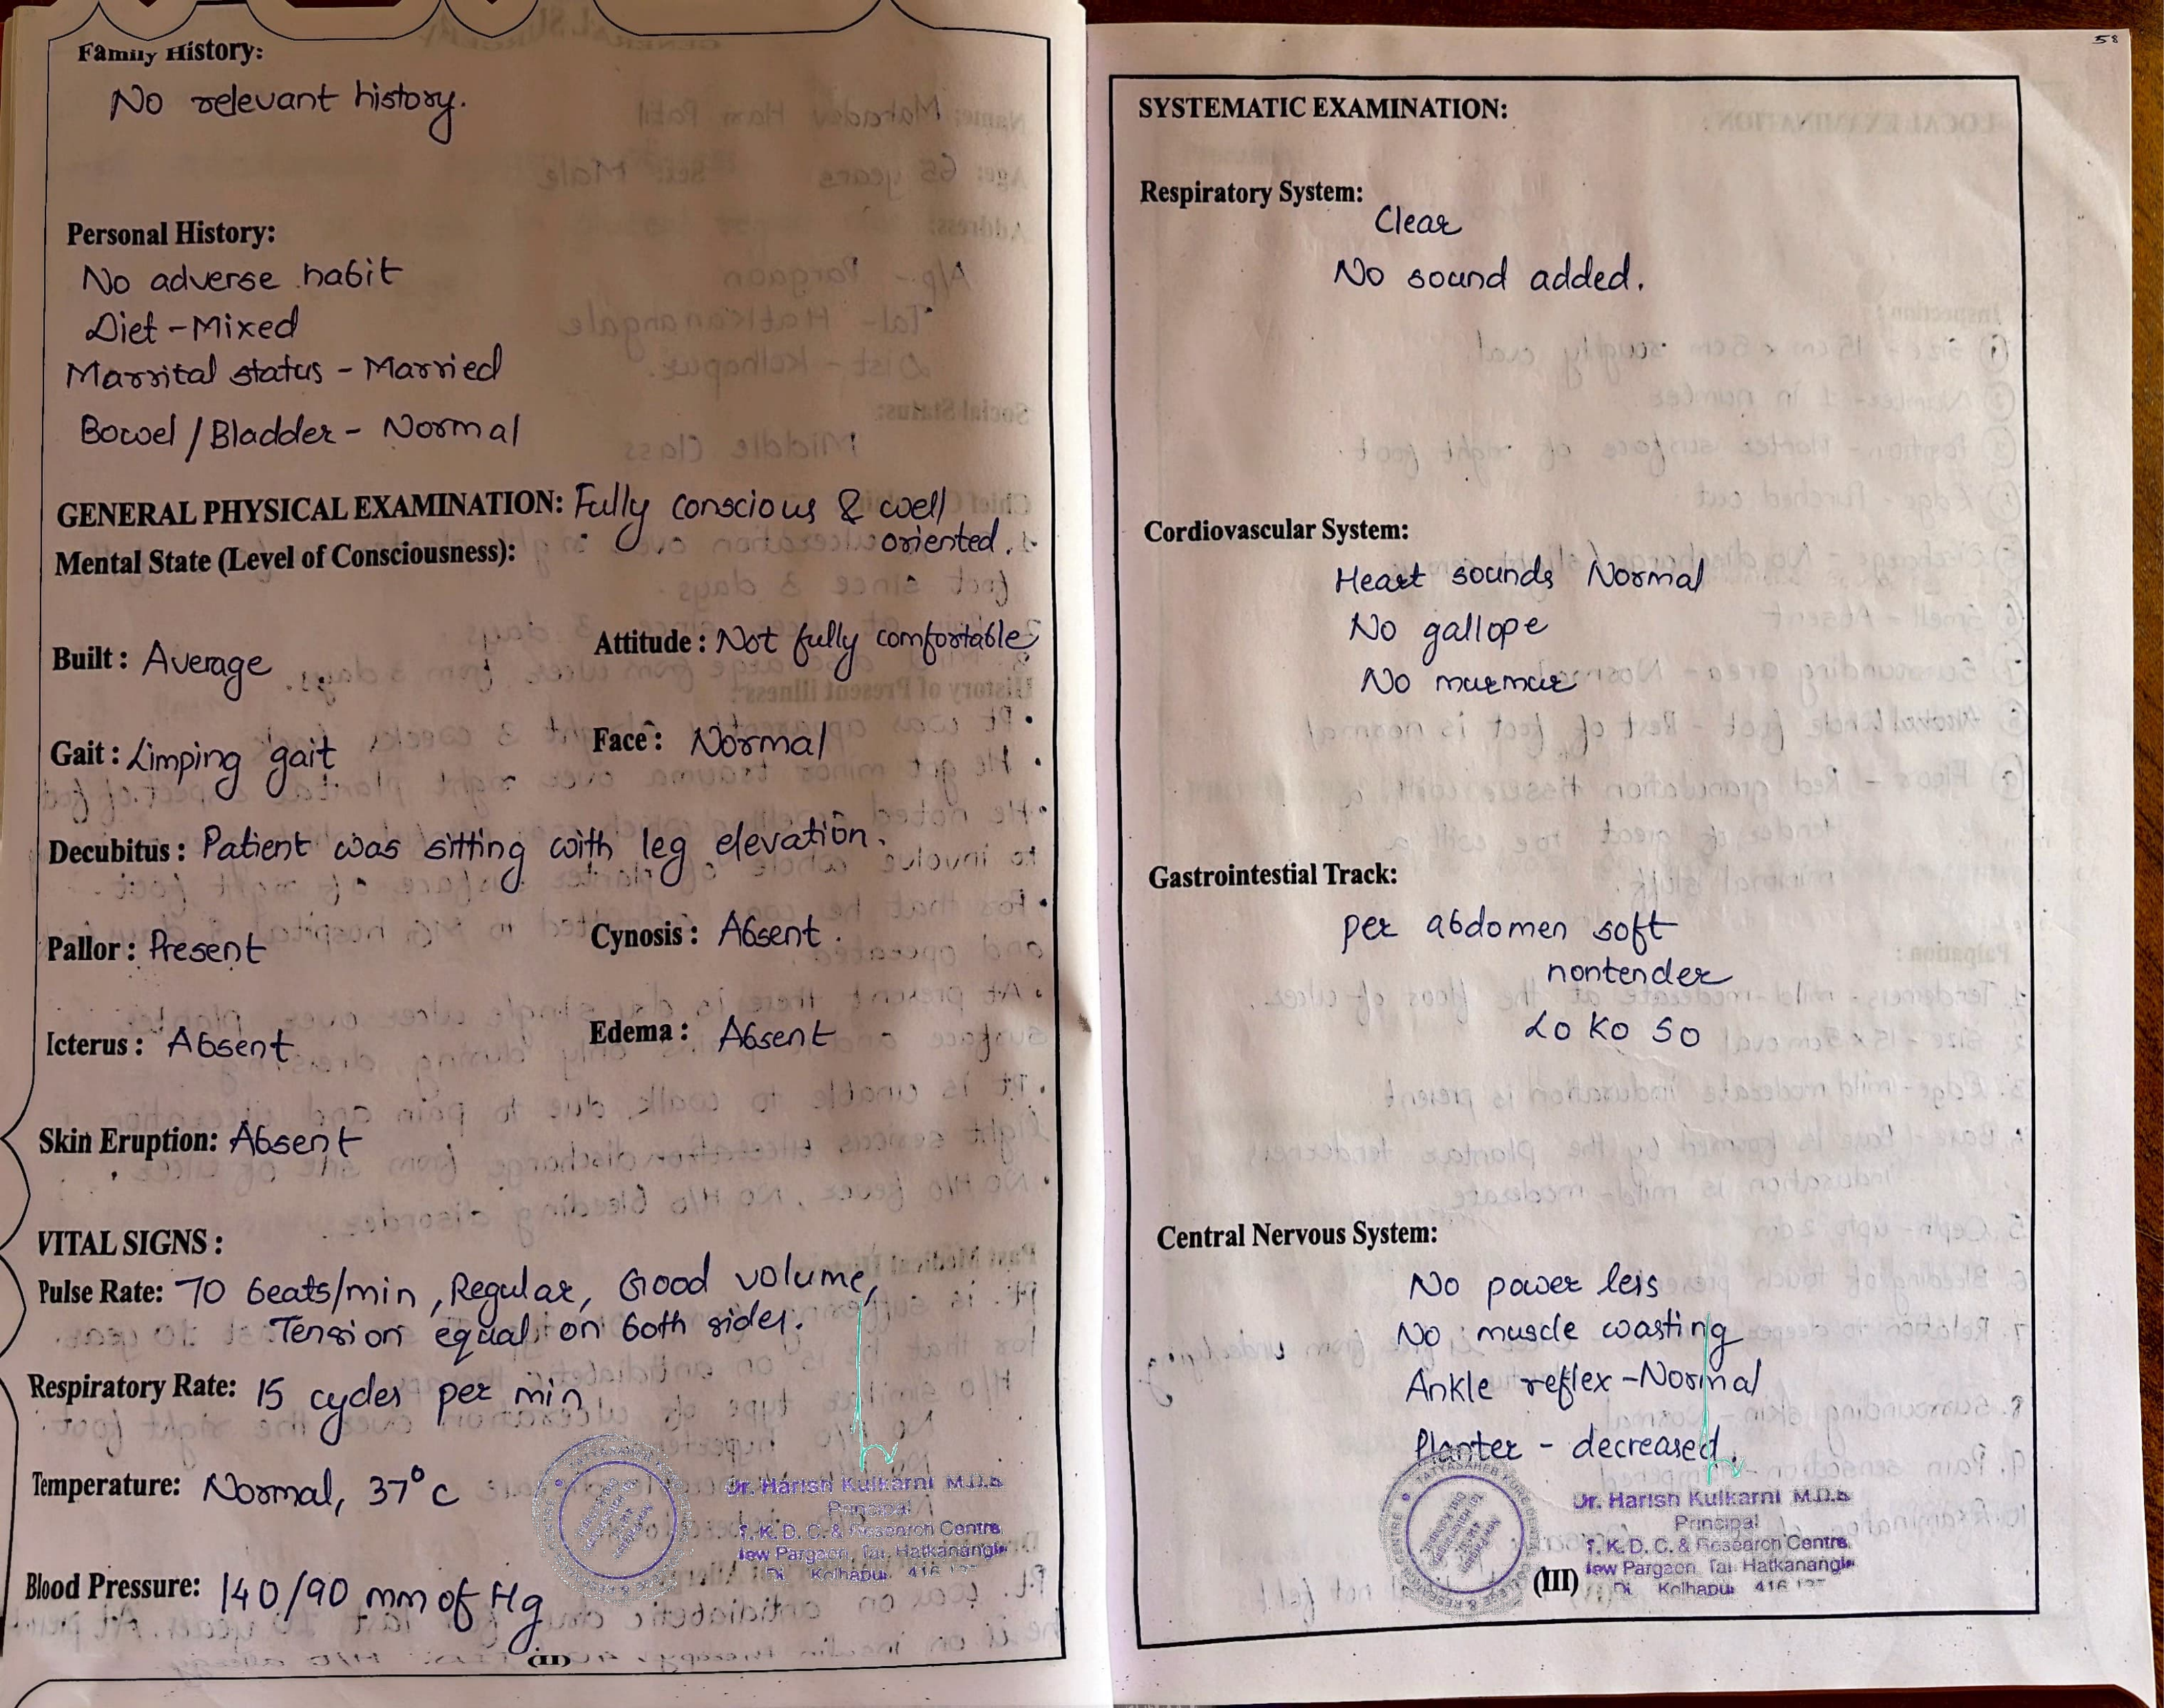 Family History:
No relevant history.
Personal History:
No adverse habit
Diet - Mixed
Marrital status - Married
Bowel / Bladder - Normal
GENERAL PHYSICAL EXAMINATION: Fully conscious & well
oriented.
Mental State (Level of Consciousness):
Built : Average
Attitude : Not fully comfortable
Gait : Limping gait
Face : Normal
Decubitus : Patient was sitting with leg elevation.
Pallor : Present
Cynosis : Absent.
Icterus : Absent
Edema : Absent
Skin Eruption: Absent
VITAL SIGNS :
Pulse Rate: 70 beats/min, Regular, Good volume,
Tension equal on both sides.
Respiratory Rate: 15 cycles per min
Temperature: Normal, 37°c
Blood Pressure: 140/90 mm of Hg
Dr. Harish Kulkarni M.D.S
Principal
T. K. D. C. & Research Centre
New Pargaon, Tal. Hatkanangle
Di. Kolhapur 416
(II)
58
SYSTEMATIC EXAMINATION:
Respiratory System:
Clear
No sound added.
Cordiovascular System:
Heart sounds Normal
No gallope
No murmur
Gastrointestial Track:
per abdomen soft
nontender
Lo Ko So
Central Nervous System:
No power less
No muscle wasting
Ankle reflex - Normal
Planter - decreased.
Dr. Harish Kulkarni M.D.S
Principal
T. K. D. C. & Research Centre
New Pargaon, Tal. Hatkanangle
Di. Kolhapur 416
(III)